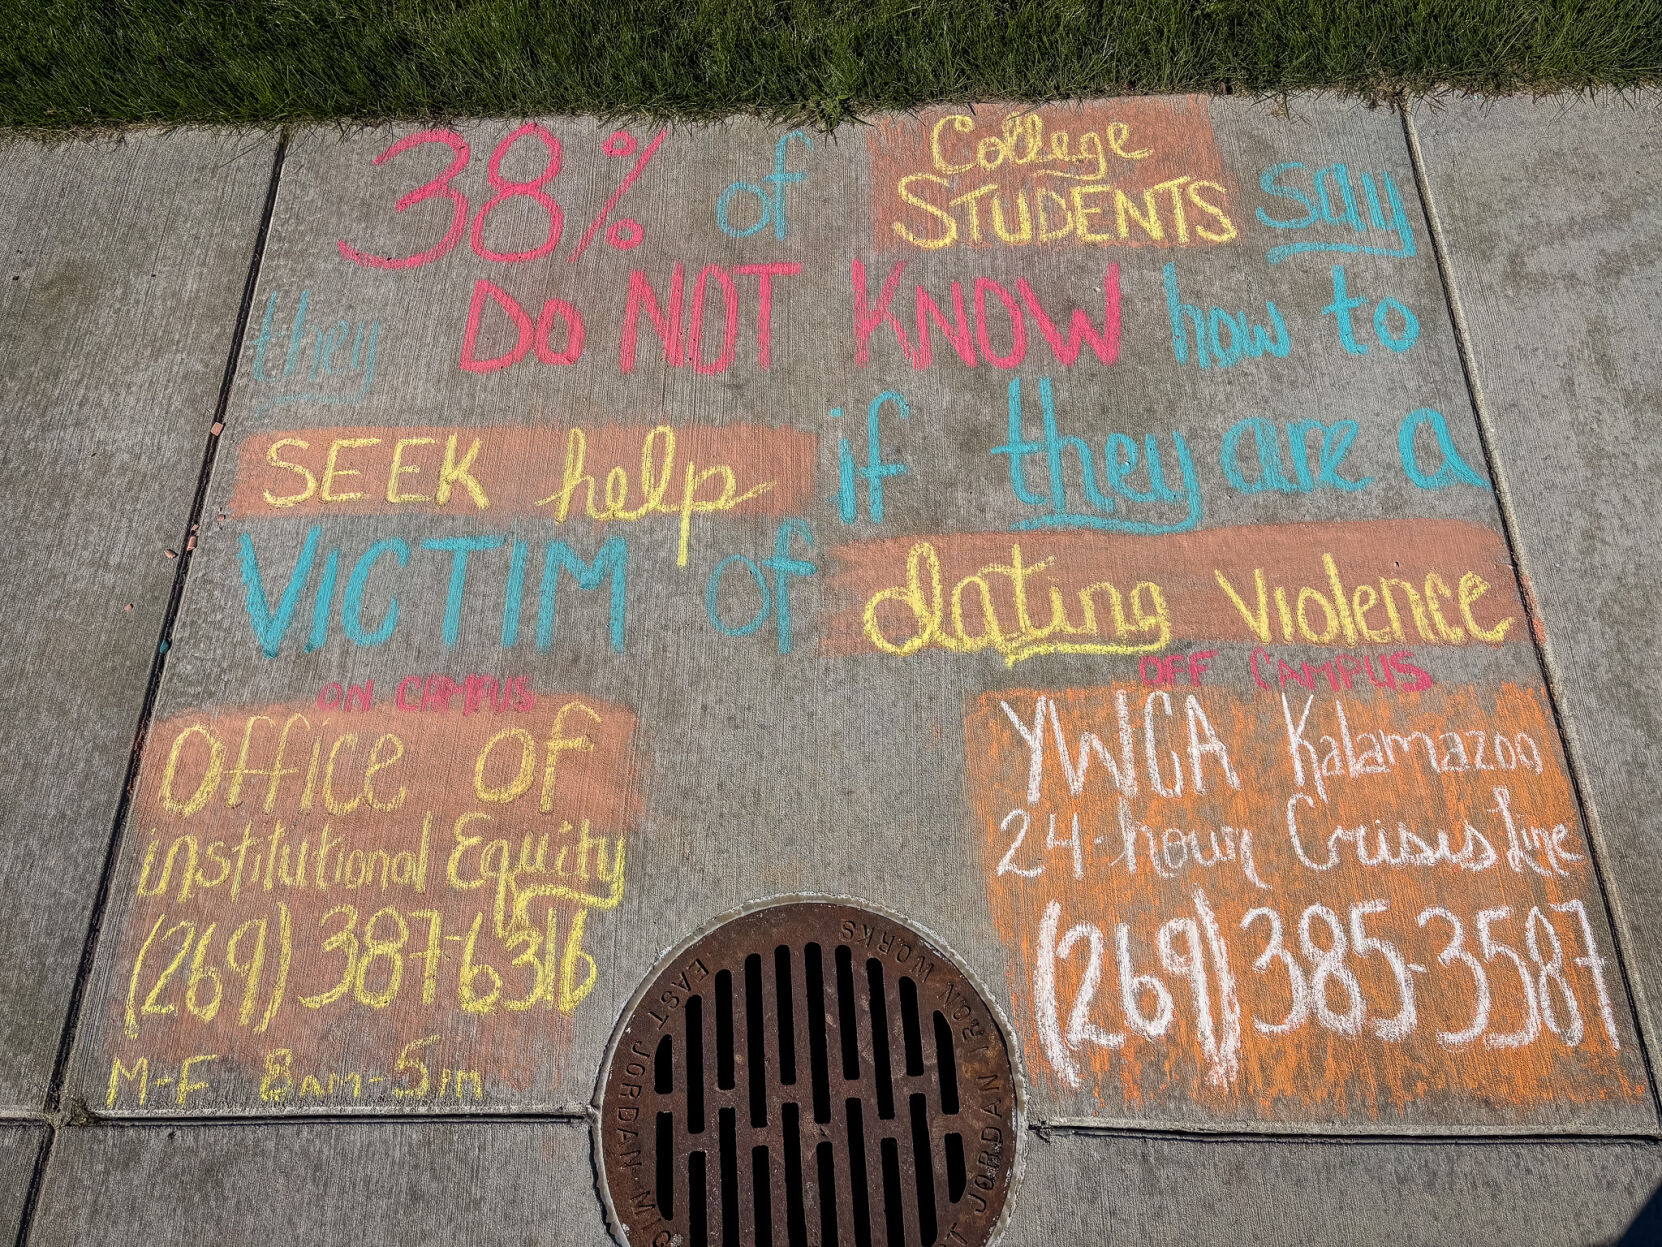 38% of College STUDENTS say
they Do NOT KNOW how to
SEEK help if they are a
VICTIM of dating Violence
ON CAMPUS
Office of
institutional Equity
(269) 387-6316
M-F 8am-5pm
OFF CAMPUS
YWCA Kalamazoo
24-hour Crisis Line
(269) 385-3587
EAST JORDAN IRON WORKS
EAST JORDAN MI